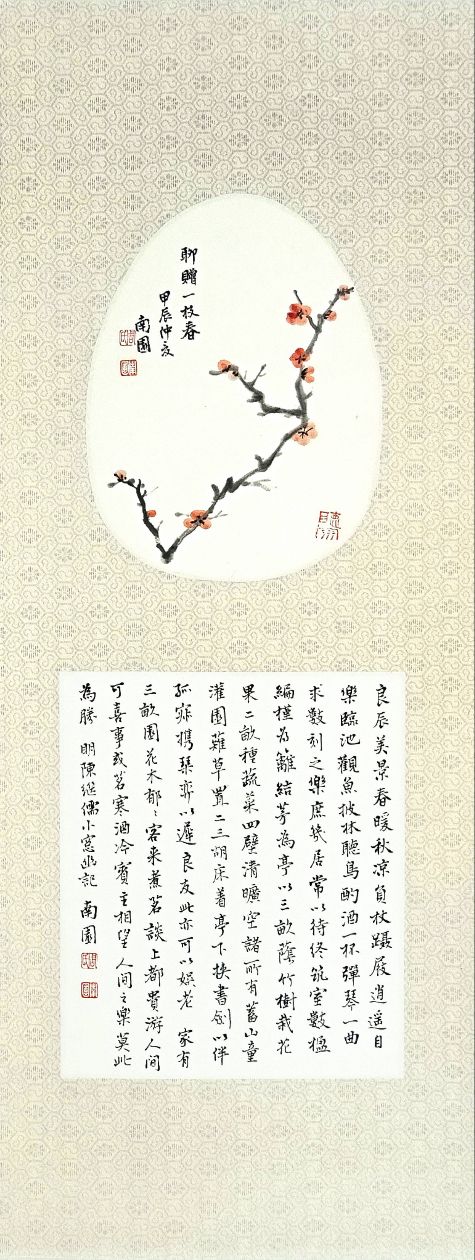 聊贈一枝春
甲辰仲夏
南園
良辰美景春暖秋凉負杖躡屐逍遥自
樂臨池觀魚披林聽鳥酌酒一杯彈琴一曲
求數刻之樂庶幾居常以待終筑室數楹
編槿为籬結茅為亭以三畝蔭竹樹栽花
果二畝種蔬菜四壁清曠空諸所有蓄山童
灌園薙草置二三胡床着亭下挾書劍以伴
孤寂携琴弈以遲良友此亦可以娱老 家有
三畝園花木郁〻客来煮茗談上都貴游人間
可喜事或茗寒酒冷賓主相望人間之樂莫此
為勝 明陳继儒小窓幽記 南園